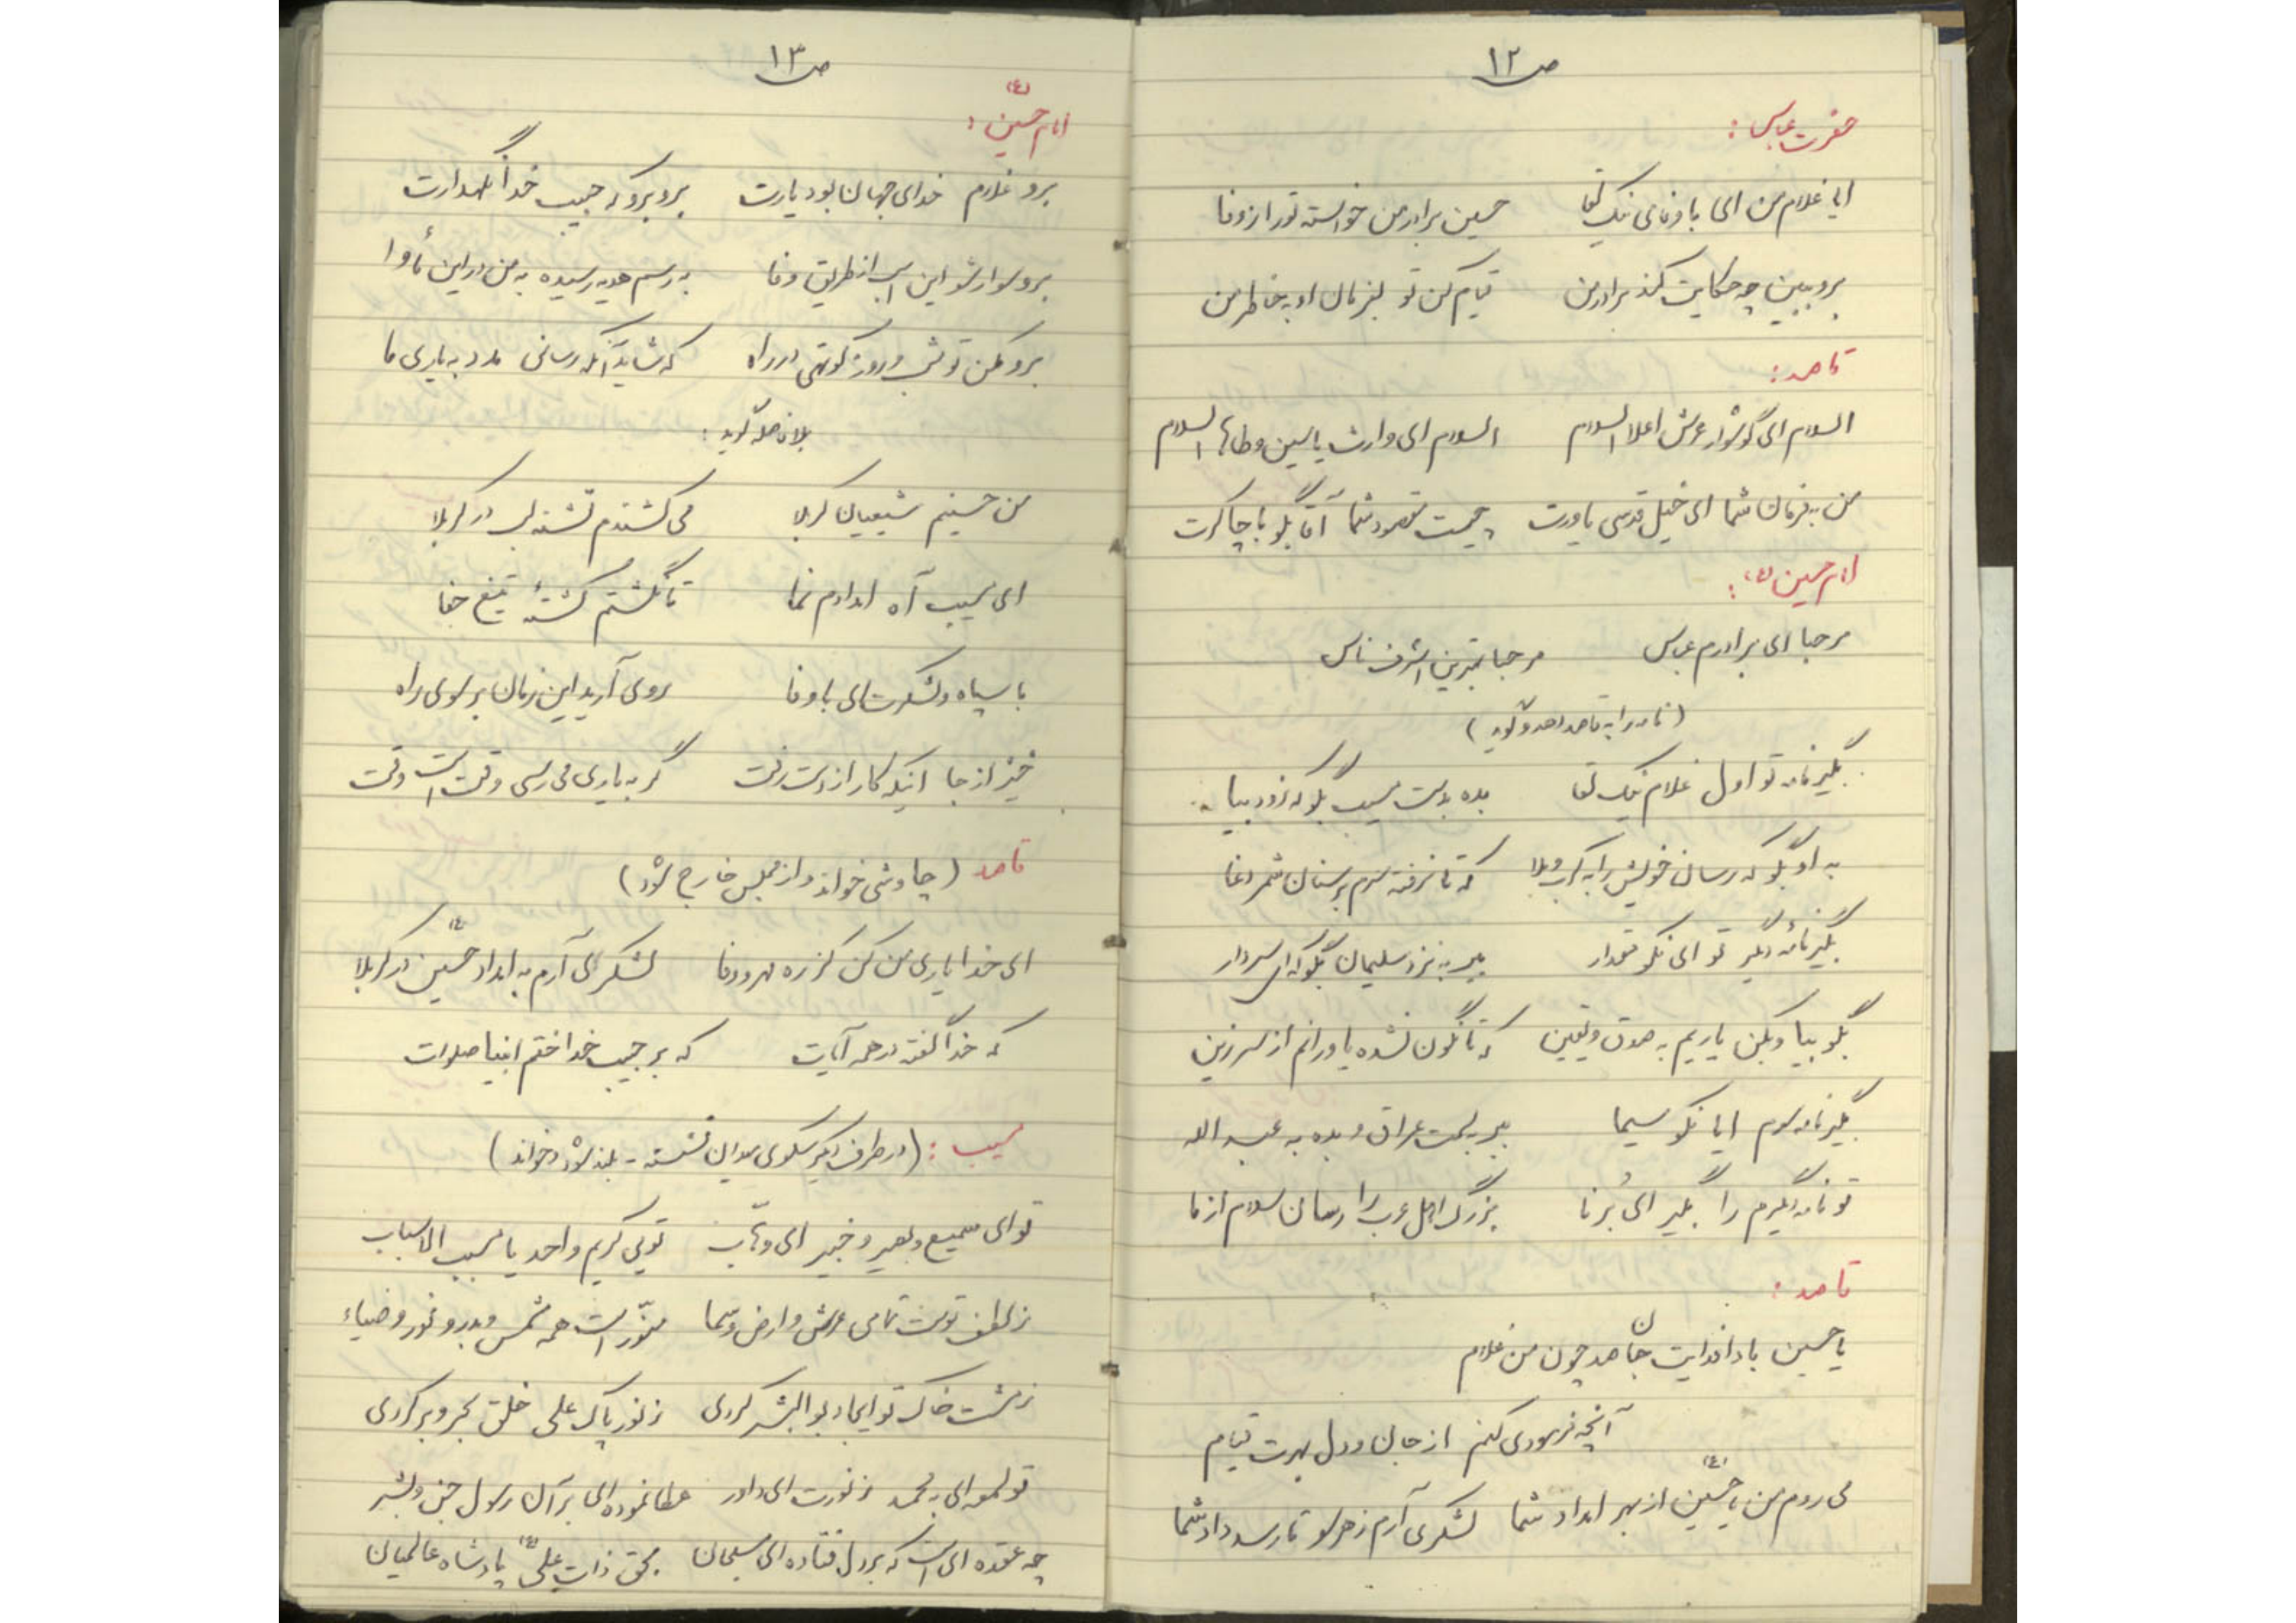 ص ۱۲
حضرت عباس :
ای غلام من ای با وفای نیک لقا حسین برادر من خواسته تو را ز وفا
برو ببین چه حکایت کند برادر من قیام کن تو بفرمان او به خاطر من
قاصد :
السلام ای گوشوار عرش اعلا السلام السلام ای وارث یاسین و طاها السلام
من به فرمان شما ای خیل قدسی یاورت چیست مقصود شما آقا بگو با چاکرت
امام حسین (ع) :
مرحبا ای برادرم عباس مرحبا بهترین اشرف ناس
( نامه را به قاصد دهد و گوید )
بگیر نامه تو اول غلام نیک لقا بده بدست مسیب بگو که زود بیا
به او بگو که رسان خویش را به کرب و بلا که تا نرفته سرم بر سنان شمر دغا
بگیر نامه دیگر تو ای نکو مقدار ببر به نزد سلیمان بگو که ای سردار
بگو بیا و بکن یاریم به صدق و یقین که تا نگون نشده یاورانم از سر زین
بگیر نامه سوم ایا نکو سیما ببر بسمت عراق و بده به عبدالله
تو نامه دیگرم را بگیر ای بُرنا بزرگ اهل عرب را رسان سلام از ما
قاصد :
یا حسین بادا فدایت جان صد چون من غلام
آنچه فرمودی کنم از جان و دل بهرت قیام
می روم من یا حسین (ع) از بهر امداد شما لشکری آرم ز هر سو تا رسد داد شما
ص ۱۳
امام حسین (ع) :
برو غلام خدای جهان بود یارت برو برو که حبیب خدا نگهدارت
برو سوار شو این اسب از طریق وفا به رسم هدیه رسیده به من در این مأوا
برو مکن تو شب و روز کوتهی در راه که شاید آنکه رسانی مدد به یاری ما
بلافاصله گوید :
من حسینم شیعیان کربلا می کشندم تشنه لب در کربلا
ای مسیب آه امدادم نما تا نگشتم کشتهٔ تیغ جفا
با سپاه و لشکرت ای با وفا روی آرید این زمان بر سوی راه
خیز از جا اینکه کار از دست رفت گر به یاری می رسی وقت است وقت
قاصد ( چاوشی خواند و از مجلس خارج شود )
ای خدا یاری من کن کز ره مهر و وفا لشکری آرم به امداد حسین (ع) در کربلا
که خدا گفته در همه آیات که بر حبیب خدا ختم انبیا صلوات
مسیب : ( در طرف دیگر سکوی میدان نشسته - بلند شود و خواند )
تو ای سمیع و بصیر و خبیر ای وهّاب تویی کریم و احد یا مسبب الاسباب
ز لطف توست تمامی عرش و ارض و سما منوّر است همه شمس و بدر و نور و ضیاء
ز مشت خاک تو ایجاد بوالبشر کردی ز نور پاک علی خلق بحر و بر کردی
تو لمعه ای به محمد ز نورت ای داور عطا نموده ای بر آن رسول جن و بشر
چه عقده ای است که بر دل فتاده ای سبحان بحق ذات علی (ع) پادشاه عالمیان